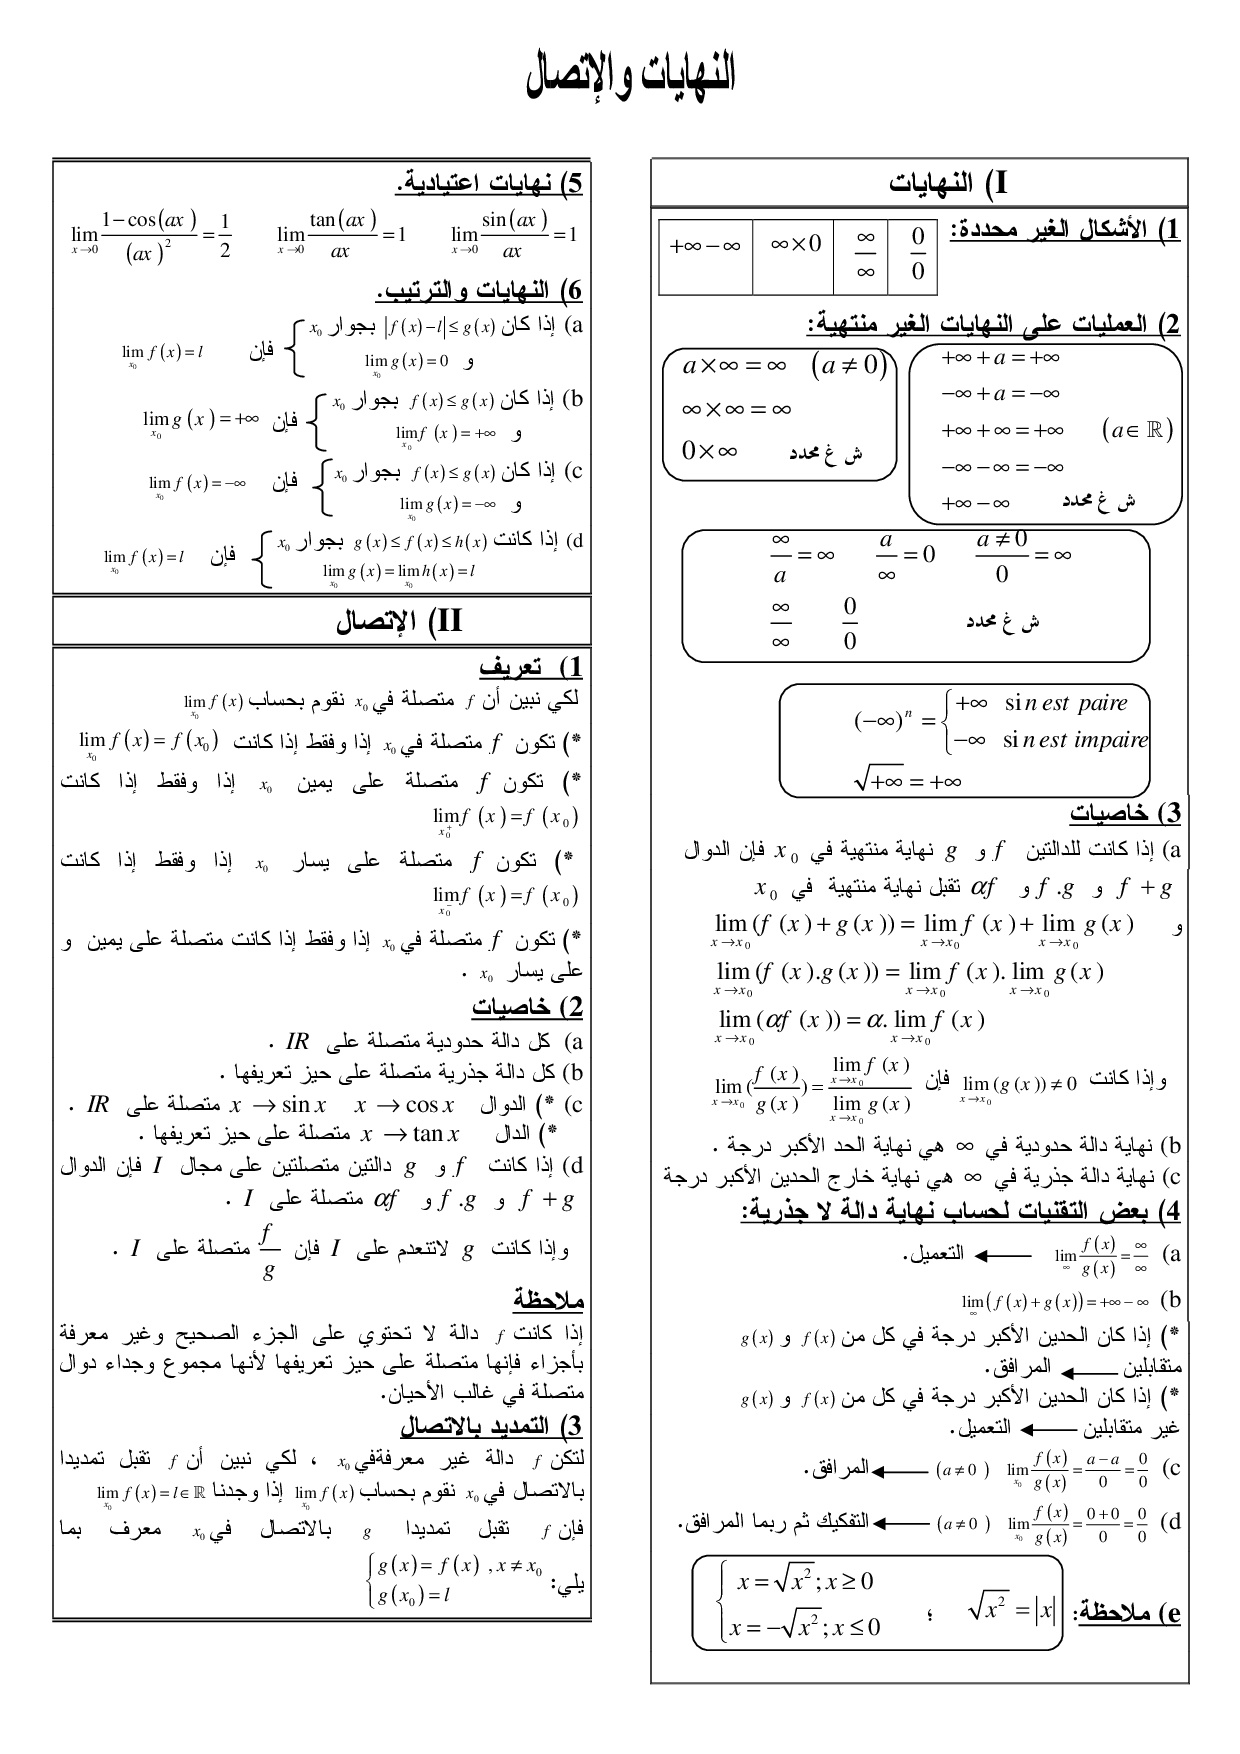 النهايات والإتصال
I) النهايات
1) الأشكال الغير محددة:
0/0   ∞/∞   ∞×0   +∞−∞
2) العمليات على النهايات الغير منتهية:
+∞ + a = +∞
−∞ + a = −∞
+∞ + ∞ = +∞   (a ∈ ℝ)
−∞ − ∞ = −∞
+∞ − ∞   ش غ محدد
a×∞ = ∞   (a ≠ 0)
∞×∞ = ∞
0×∞   ش غ محدد
∞/a = ∞   a/∞ = 0   (a≠0)/0 = ∞
∞/∞   0/0   ش غ محدد
(−∞)^n = { +∞ si n est paire
−∞ si n est impaire
√+∞ = +∞
3) خاصيات
a) إذا كانت للدالتين f و g نهاية منتهية في x₀ فإن الدوال
f + g و f .g و αf تقبل نهاية منتهية في x₀
و lim_{x→x₀} (f (x) + g(x)) = lim_{x→x₀} f (x) + lim_{x→x₀} g(x)
lim_{x→x₀} (f (x).g(x)) = lim_{x→x₀} f (x). lim_{x→x₀} g(x)
lim_{x→x₀} (αf (x)) = α. lim_{x→x₀} f (x)
وإذا كانت lim_{x→x₀} (g(x)) ≠ 0 فإن lim_{x→x₀} (f (x)/g(x)) = lim_{x→x₀} f (x) / lim_{x→x₀} g(x)
b) نهاية دالة حدودية في ∞ هي نهاية الحد الأكبر درجة .
c) نهاية دالة جذرية في ∞ هي نهاية خارج الحدين الأكبر درجة
4) بعض التقنيات لحساب نهاية دالة لا جذرية:
a) lim_∞ f(x)/g(x) = ∞/∞ ← التعميل.
b) lim_∞ (f(x) + g(x)) = +∞ − ∞
*) إذا كان الحدين الأكبر درجة في كل من f(x) و g(x)
متقابلين ← المرافق.
*) إذا كان الحدين الأكبر درجة في كل من f(x) و g(x)
غير متقابلين ← التعميل.
c) lim_{x₀} f(x)/g(x) = (a−a)/0 = 0/0 (a ≠ 0 ) ← المرافق.
d) lim_{x₀} f(x)/g(x) = (0+0)/0 = 0/0 (a ≠ 0 ) ← التفكيك ثم ربما المرافق.
e) ملاحظة: √x² = |x| ؛ { x = √x² ; x ≥ 0
x = −√x² ; x ≤ 0
5) نهايات اعتيادية.
lim_{x→0} sin(ax)/ax = 1   lim_{x→0} tan(ax)/ax = 1   lim_{x→0} (1−cos(ax))/(ax)² = 1/2
6) النهايات والترتيب.
a) إذا كان |f(x) − l| ≤ g(x) بجوار x₀
و lim_{x₀} g(x) = 0 فإن lim_{x₀} f(x) = l
b) إذا كان f(x) ≤ g(x) بجوار x₀
و lim_{x₀} f(x) = +∞ فإن lim_{x₀} g(x) = +∞
c) إذا كان f(x) ≤ g(x) بجوار x₀
و lim_{x₀} g(x) = −∞ فإن lim_{x₀} f(x) = −∞
d) إذا كانت g(x) ≤ f(x) ≤ h(x) بجوار x₀
lim_{x₀} g(x) = lim_{x₀} h(x) = l فإن lim_{x₀} f(x) = l
II) الإتصال
1) تعريف
لكي نبين أن f متصلة في x₀ نقوم بحساب lim_{x₀} f(x)
*) تكون f متصلة في x₀ إذا وفقط إذا كانت lim_{x₀} f(x) = f(x₀)
*) تكون f متصلة على يمين x₀ إذا وفقط إذا كانت
lim_{x₀⁺} f (x) = f (x₀)
*) تكون f متصلة على يسار x₀ إذا وفقط إذا كانت
lim_{x₀⁻} f (x) = f (x₀)
*) تكون f متصلة في x₀ إذا وفقط إذا كانت متصلة على يمين و
على يسار x₀ .
2) خاصيات
a) كل دالة حدودية متصلة على IR .
b) كل دالة جذرية متصلة على حيز تعريفها .
c) *) الدوال x → cos x   x → sin x متصلة على IR .
*) الدال x → tan x متصلة على حيز تعريفها .
d) إذا كانت f و g دالتين متصلتين على مجال I فإن الدوال
f + g و f .g و αf متصلة على I .
وإذا كانت g لاتنعدم على I فإن f/g متصلة على I .
ملاحظة
إذا كانت f دالة لا تحتوي على الجزء الصحيح وغير معرفة
بأجزاء فإنها متصلة على حيز تعريفها لأنها مجموع وجداء دوال
متصلة في غالب الأحيان.
3) التمديد بالاتصال
لتكن f دالة غير معرفةفي x₀ ، لكي نبين أن f تقبل تمديدا
بالاتصال في x₀ نقوم بحساب lim_{x₀} f(x) إذا وجدنا lim_{x₀} f(x) = l ∈ ℝ
فإن f تقبل تمديدا g بالاتصال في x₀ معرف بما
يلي: { g(x) = f(x) , x ≠ x₀
g(x₀) = l